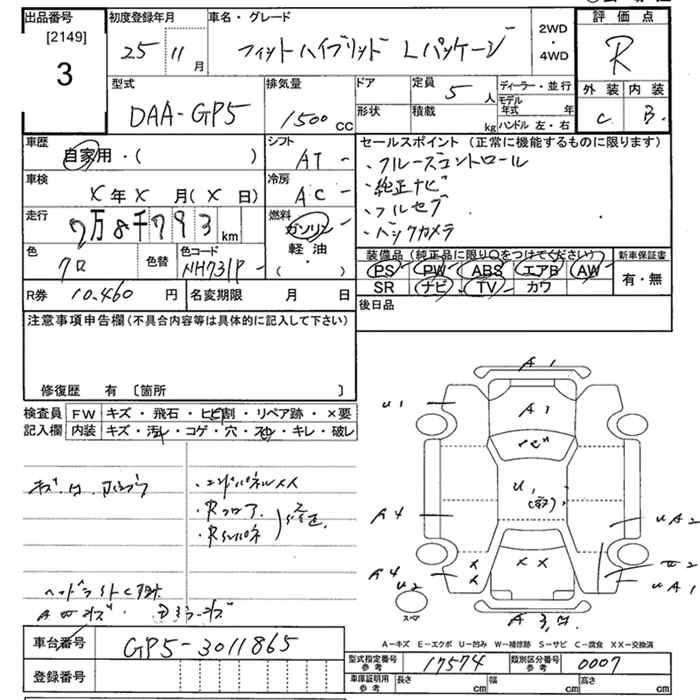 出品番号 [2149] 3
初度登録年月 25 11 月
車名・グレード フィットハイブリッド Lパッケージ
2WD ・ 4WD
評価点 R
外装 C 内装 B
型式 DAA-GP5
排気量 1500 cc
ドア 定員 5 人
形状 積載 kg
ディーラー・並行
モデル年式 年
ハンドル 左・右
車歴 自家用・( )
シフト AT
セールスポイント (正常に機能するものに限ります)
・クルーズコントロール
・純正ナビ
・フルセグ
・バックカメラ
車検 X 年 X 月 ( X 日)
冷房 AC
走行 7万8千793 km
燃料 ガソリン・軽油 ( )
色 クロ 色替 色コード NH731P
装備品 (純正品に限り○をつけてください)
PS PW ABS エアB AW
SR ナビ TV カワ
新車保証書 有・無
R券 10.460 円 名変期限 月 日
後日品
注意事項申告欄 (不具合内容等は具体的に記入して下さい)
修復歴 有 〔箇所 〕
検査員記入欄
FW キズ・飛石・ヒビ割・リペア跡・×要
内装 キズ・汚れ・コゲ・穴・スレ・キレ・破レ
・エンドパネルXX
・Rフロア
・Rインパネ
修正
A1
U1
A1
U1
A4
UA2
A4
U2
UA1
X X
X X
A3
スペア
A-キズ E-エクボ U-凹み W-補修跡 S-サビ C-腐食 XX-交換済
車台番号 GP5-3011865
登録番号
型式指定番号 参考 17574 類別区分番号 参考 0007
車庫証明用 参考 長さ cm 幅 cm 高さ cm